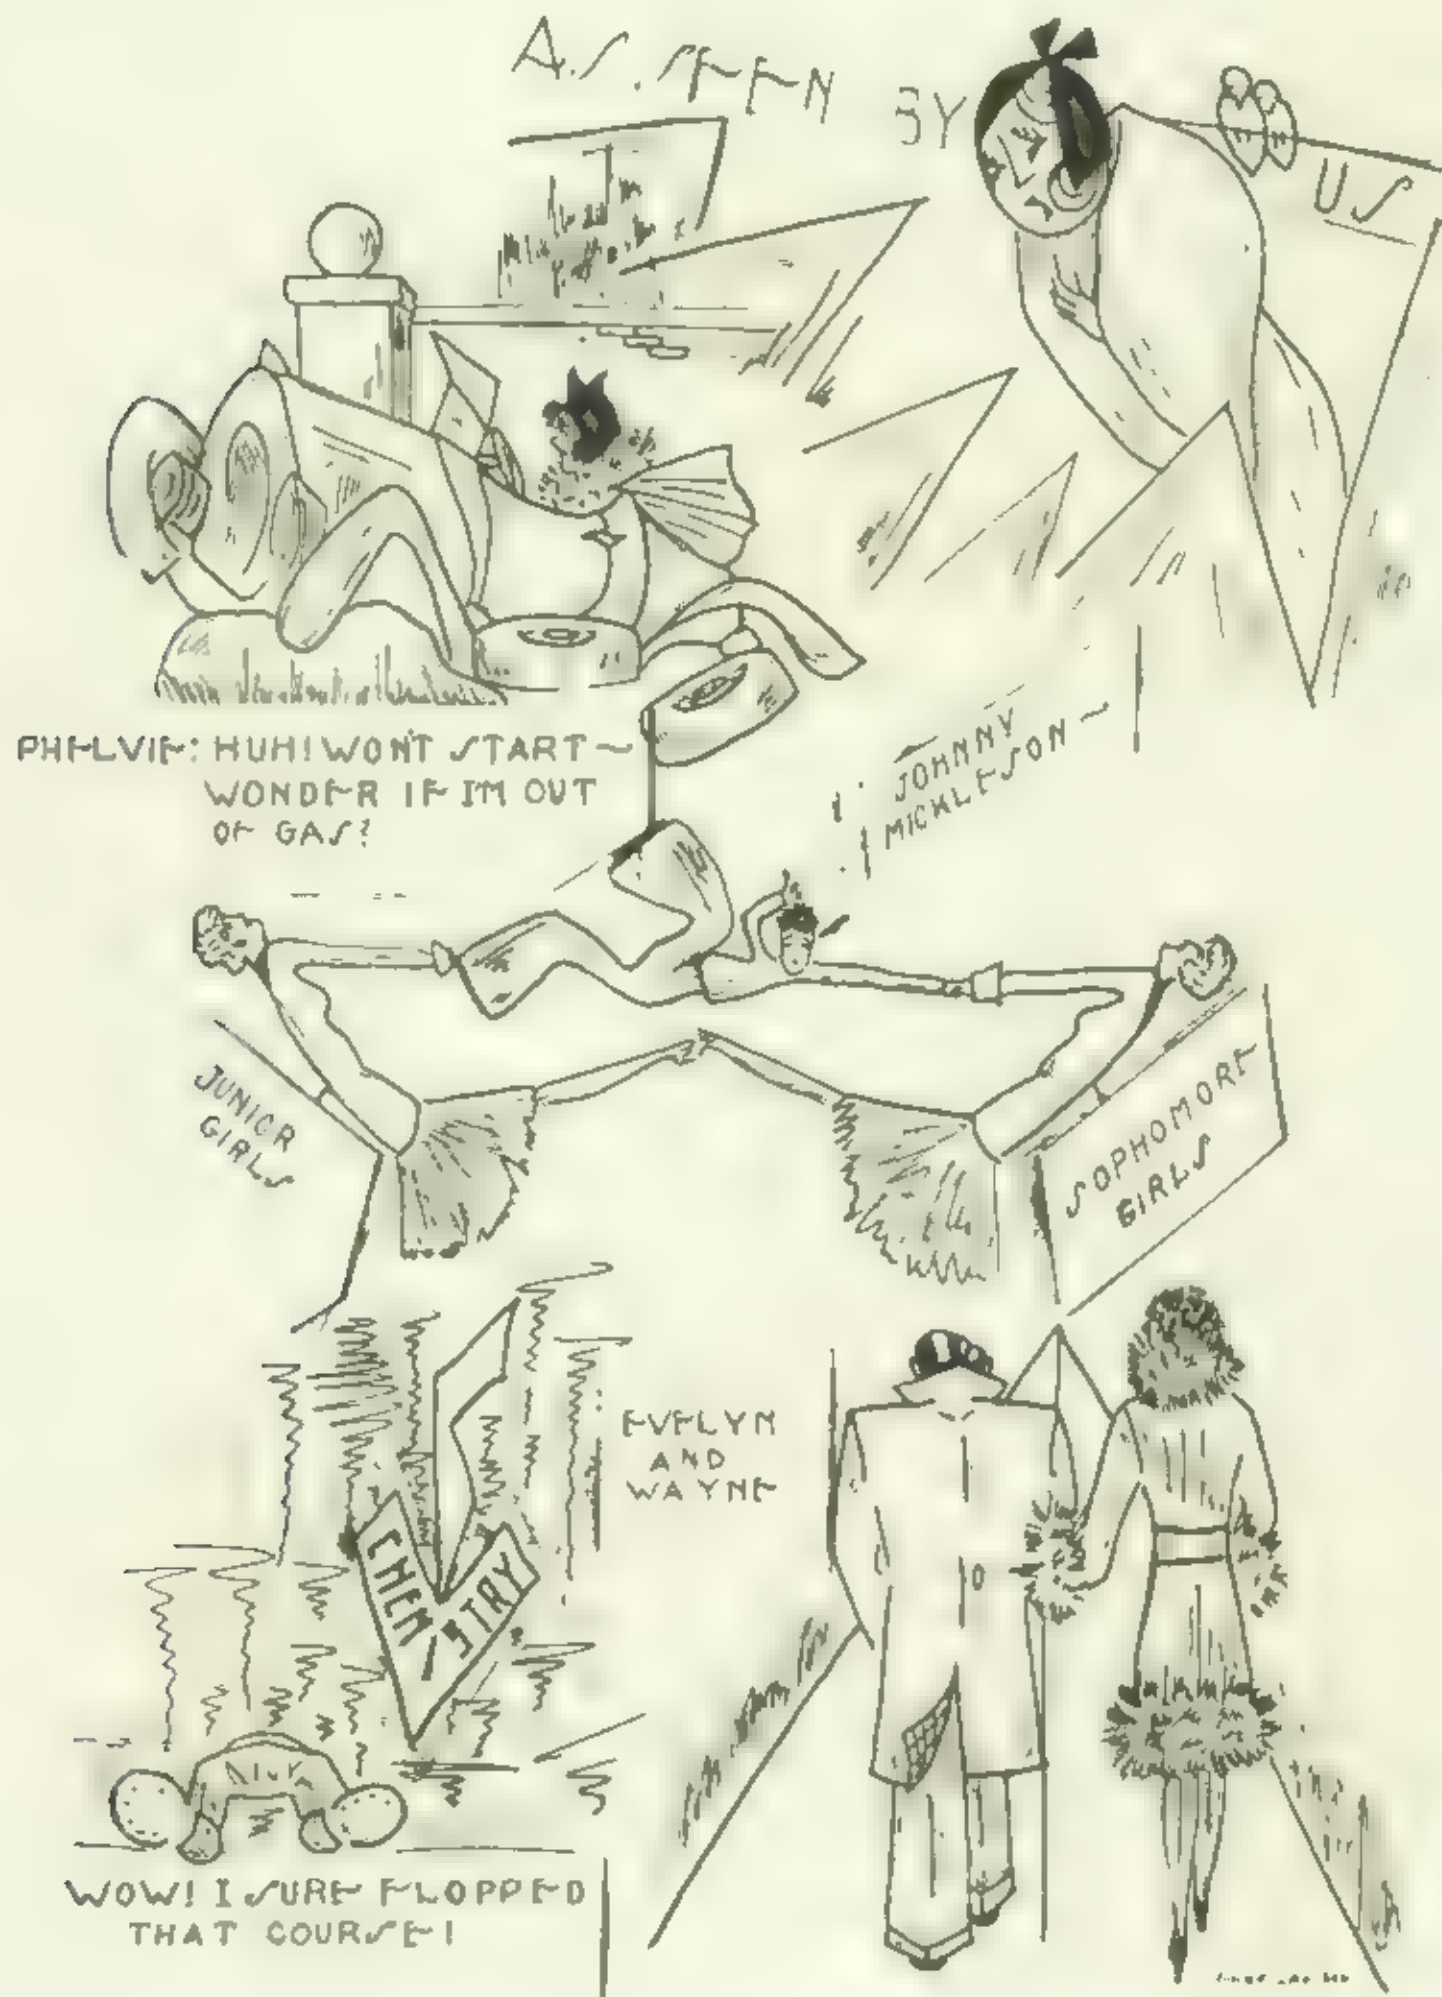 A.S. SEEN BY US
PHELVIE: HUH! WON'T START ~
WONDER IF I'M OUT
OF GAS?
JOHNNY
MICKLESON ~
JUNIOR
GIRLS
SOPHOMORE
GIRLS
EVELYN
AND
WAYNE
CHEMISTRY
WOW! I SURE FLOPPED
THAT COURSE!